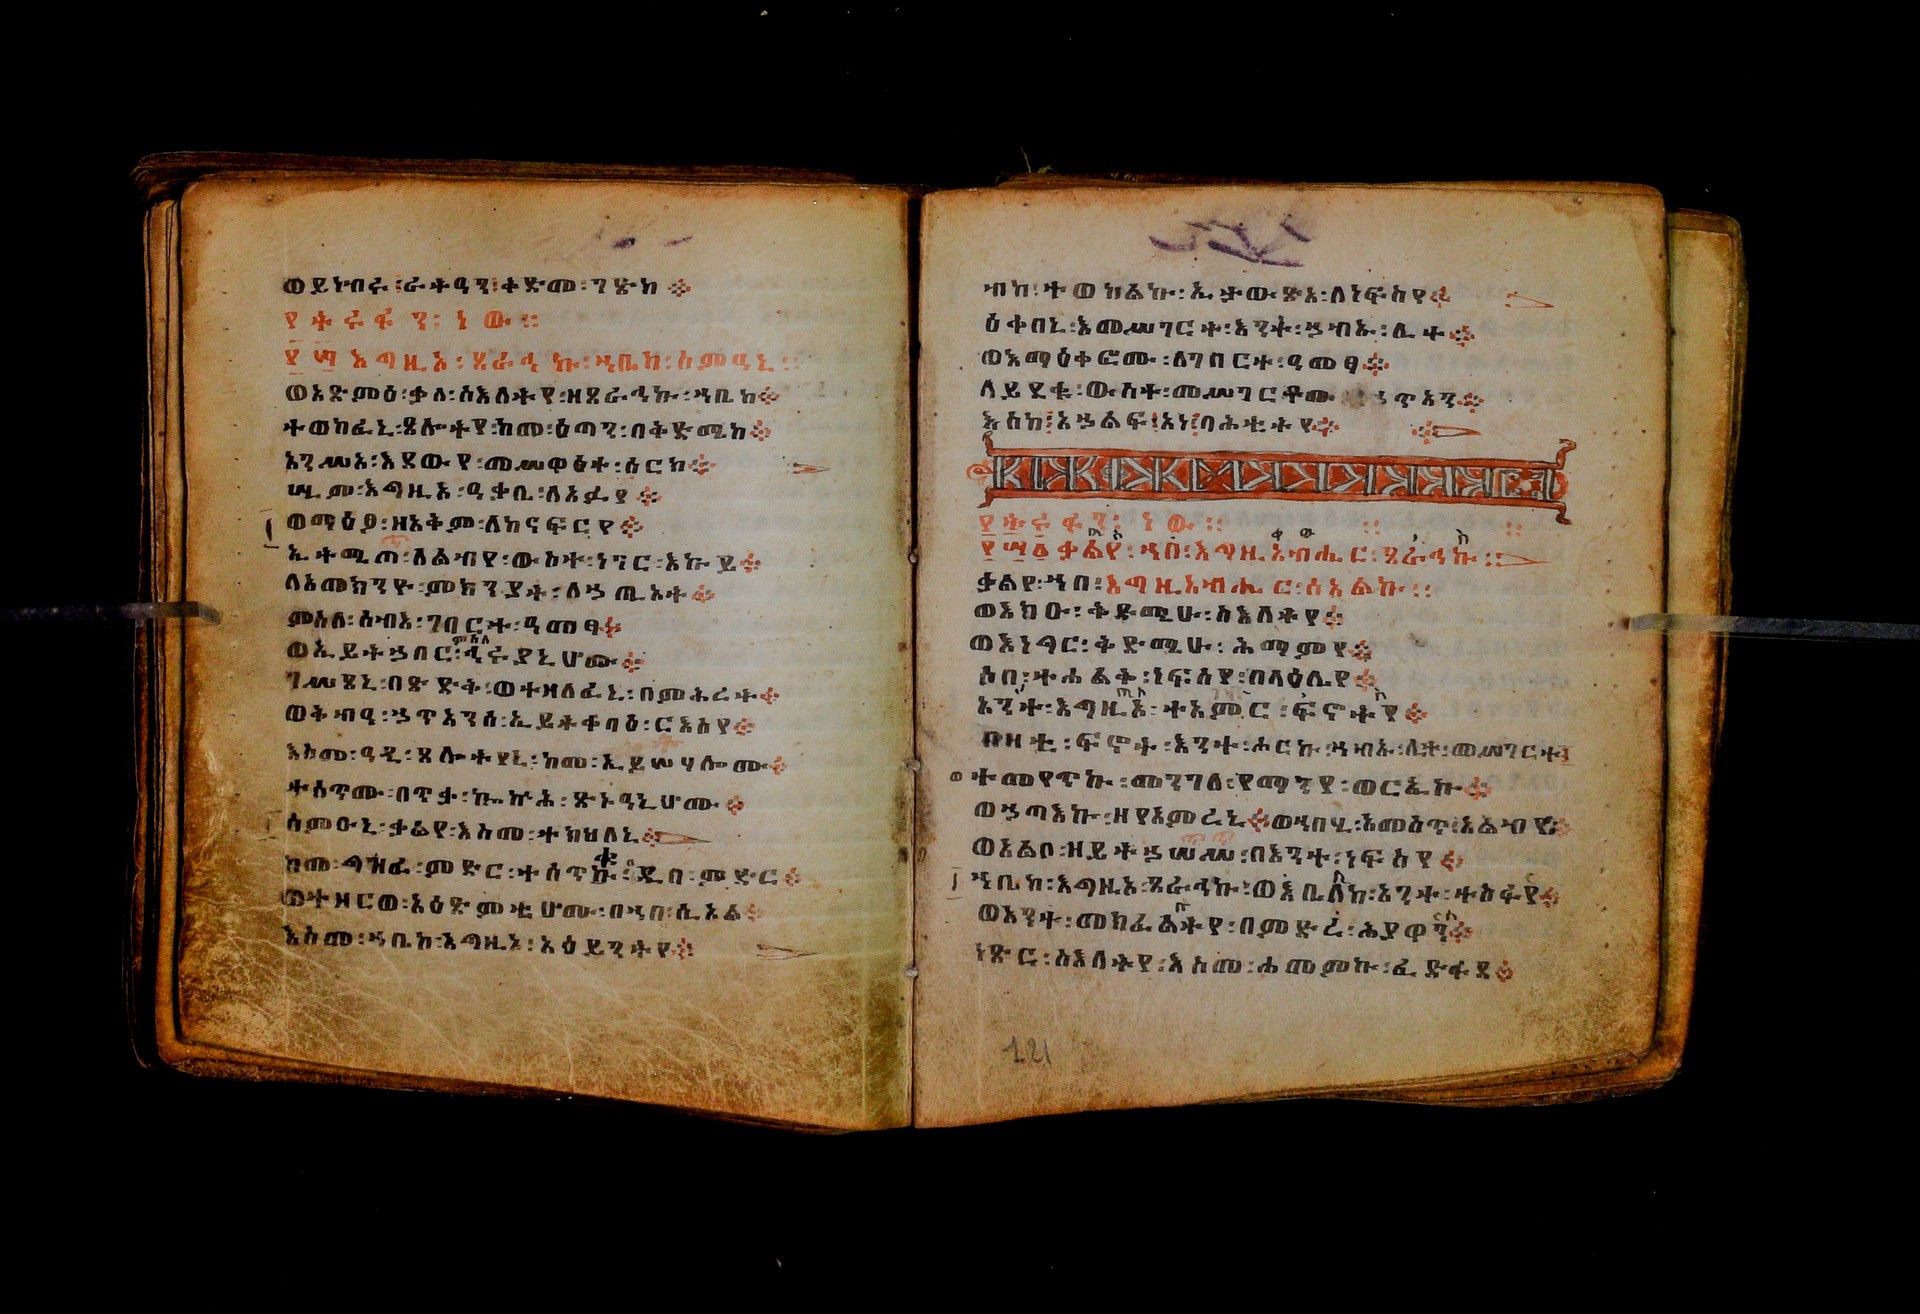 ወይነብሩ ፡ ራትዓን ፡ ቀድመ ፡ ገጽከ ።
ዖ ት ሩ ፋ ን ፡ ነ ው ።
፻ ፵ እግዚኦ ፡ ጸራኅኩ ፡ ኀቤከ ፡ ስምዓኒ ።
ወአጽምዕ ፡ ቃለ ፡ ስእለትየ ፡ ዘጸራኅኩ ፡ ኀቤከ ።
ተወከፈኒ ፡ ጸሎትየ ፡ ከመ ፡ ዕጣን ፡ በቅድሜከ ።
አንሥኦ ፡ እደውየ ፡ መሥዋዕተ ፡ ሰርክ ።
ሢም ፡ እግዚኦ ፡ ዓቃቤ ፡ ለአፉየ ።
ወማዕፆ ፡ ዘአቅም ፡ ለከናፍርየ ።
ኢትሚጦ ፡ ለልብየ ፡ ውስተ ፡ ነገር ፡ እኩይ ።
ለአመክንዮ ፡ ምክንያት ፡ ለኃጢአት ።
ምስለ ፡ ሰብእ ፡ ገበርተ ፡ ዓመፃ ።
ወኢይትኃበር ፡ ምስለ ፡ ኂሩያኒሆሙ ።
ገሥጸኒ ፡ በጽድቅ ፡ ወተዛለፈኒ ፡ በምሕረት ።
ወቅብዓ ፡ ኃጥአንሰ ፡ ኢይትቀባዕ ፡ ርእስየ ።
እስመ ፡ ዓዲ ፡ ጸሎትየኒ ፡ ከመ ፡ ኢይሠሃሎሙ ።
ተሰጥሙ ፡ በጥቃ ፡ ኰኵሕ ፡ ጽኑዓኒሆሙ ።
ስምዑኒ ፡ ቃልየ ፡ እስመ ፡ ተክህለኒ ።
ከመ ፡ ግዝፈ ፡ ምድር ፡ ተሰጥቁ ፡ ዲበ ፡ ምድር ።
ወተዘርወ ፡ አዕጽምቲሆሙ ፡ በኀበ ፡ ሲኦል ።
እስመ ፡ ኀቤከ ፡ እግዚኦ ፡ አዕይንትየ ።
ብከ ፡ ተወከልኩ ፡ ኢታውጽኣ ፡ ለነፍስየ ።
ዕቀበኒ ፡ እመሥገርት ፡ እንተ ፡ ኃብኡ ፡ ሊተ ።
ወእማዕቀፎሙ ፡ ለገበርተ ፡ ዓመፃ ።
ለይደቁ ፡ ውስተ ፡ መሥገርቶሙ ኃጥአን ።
እስከ ፡ አኃልፍ ፡ አነ ፡ በሕቲትየ ።
ዖ ት ሩ ፋ ን ፡ ነ ው ።
፻ ፵ ፩ ቃልየ ፡ ኀበ ፡ እግዚአብሔር ፡ ጸራኅኩ ።
ቃልየ ፡ ኀበ ፡ እግዚአብሔር ፡ ሰአልኩ ።
ወእክዑ ፡ ቅድሜሁ ፡ ስእለትየ ።
ወእነግር ፡ ቅድሜሁ ፡ ሕማምየ ።
ሶበ ፡ ተሐልቅ ፡ ነፍስየ ፡ በላዕሌየ ።
አንተ ፡ እግዚኦ ፡ ተአምር ፡ ፍኖትየ ።
በዛቲ ፡ ፍኖት ፡ እንተ ፡ ሖርኩ ፡ ኀብኡ ፡ ሊተ ፡ መሥገርተ ።
ተመየጥኩ ፡ መንገለ ፡ የማንየ ፡ ወርኢኩ ።
ወኃጣእኩ ፡ ዘየአምረኒ ። ወኀብሂ ፡ እመስጥ ፡ አልብየ ።
ወአልቦ ፡ ዘይትኃሠሣ ፡ በእንተ ፡ ነፍስየ ።
ኀቤከ ፡ እግዚኦ ፡ ጸራኅኩ ፡ ወእቤለከ ፡ አንተ ፡ ተስፋየ ።
ወአንተ ፡ መክፈልትየ ፡ በምድረ ፡ ሕያዋን ።
ነጽር ፡ ስእለትየ ፡ እስመ ፡ ሐመምኩ ፡ ፈድፋደ ።
121